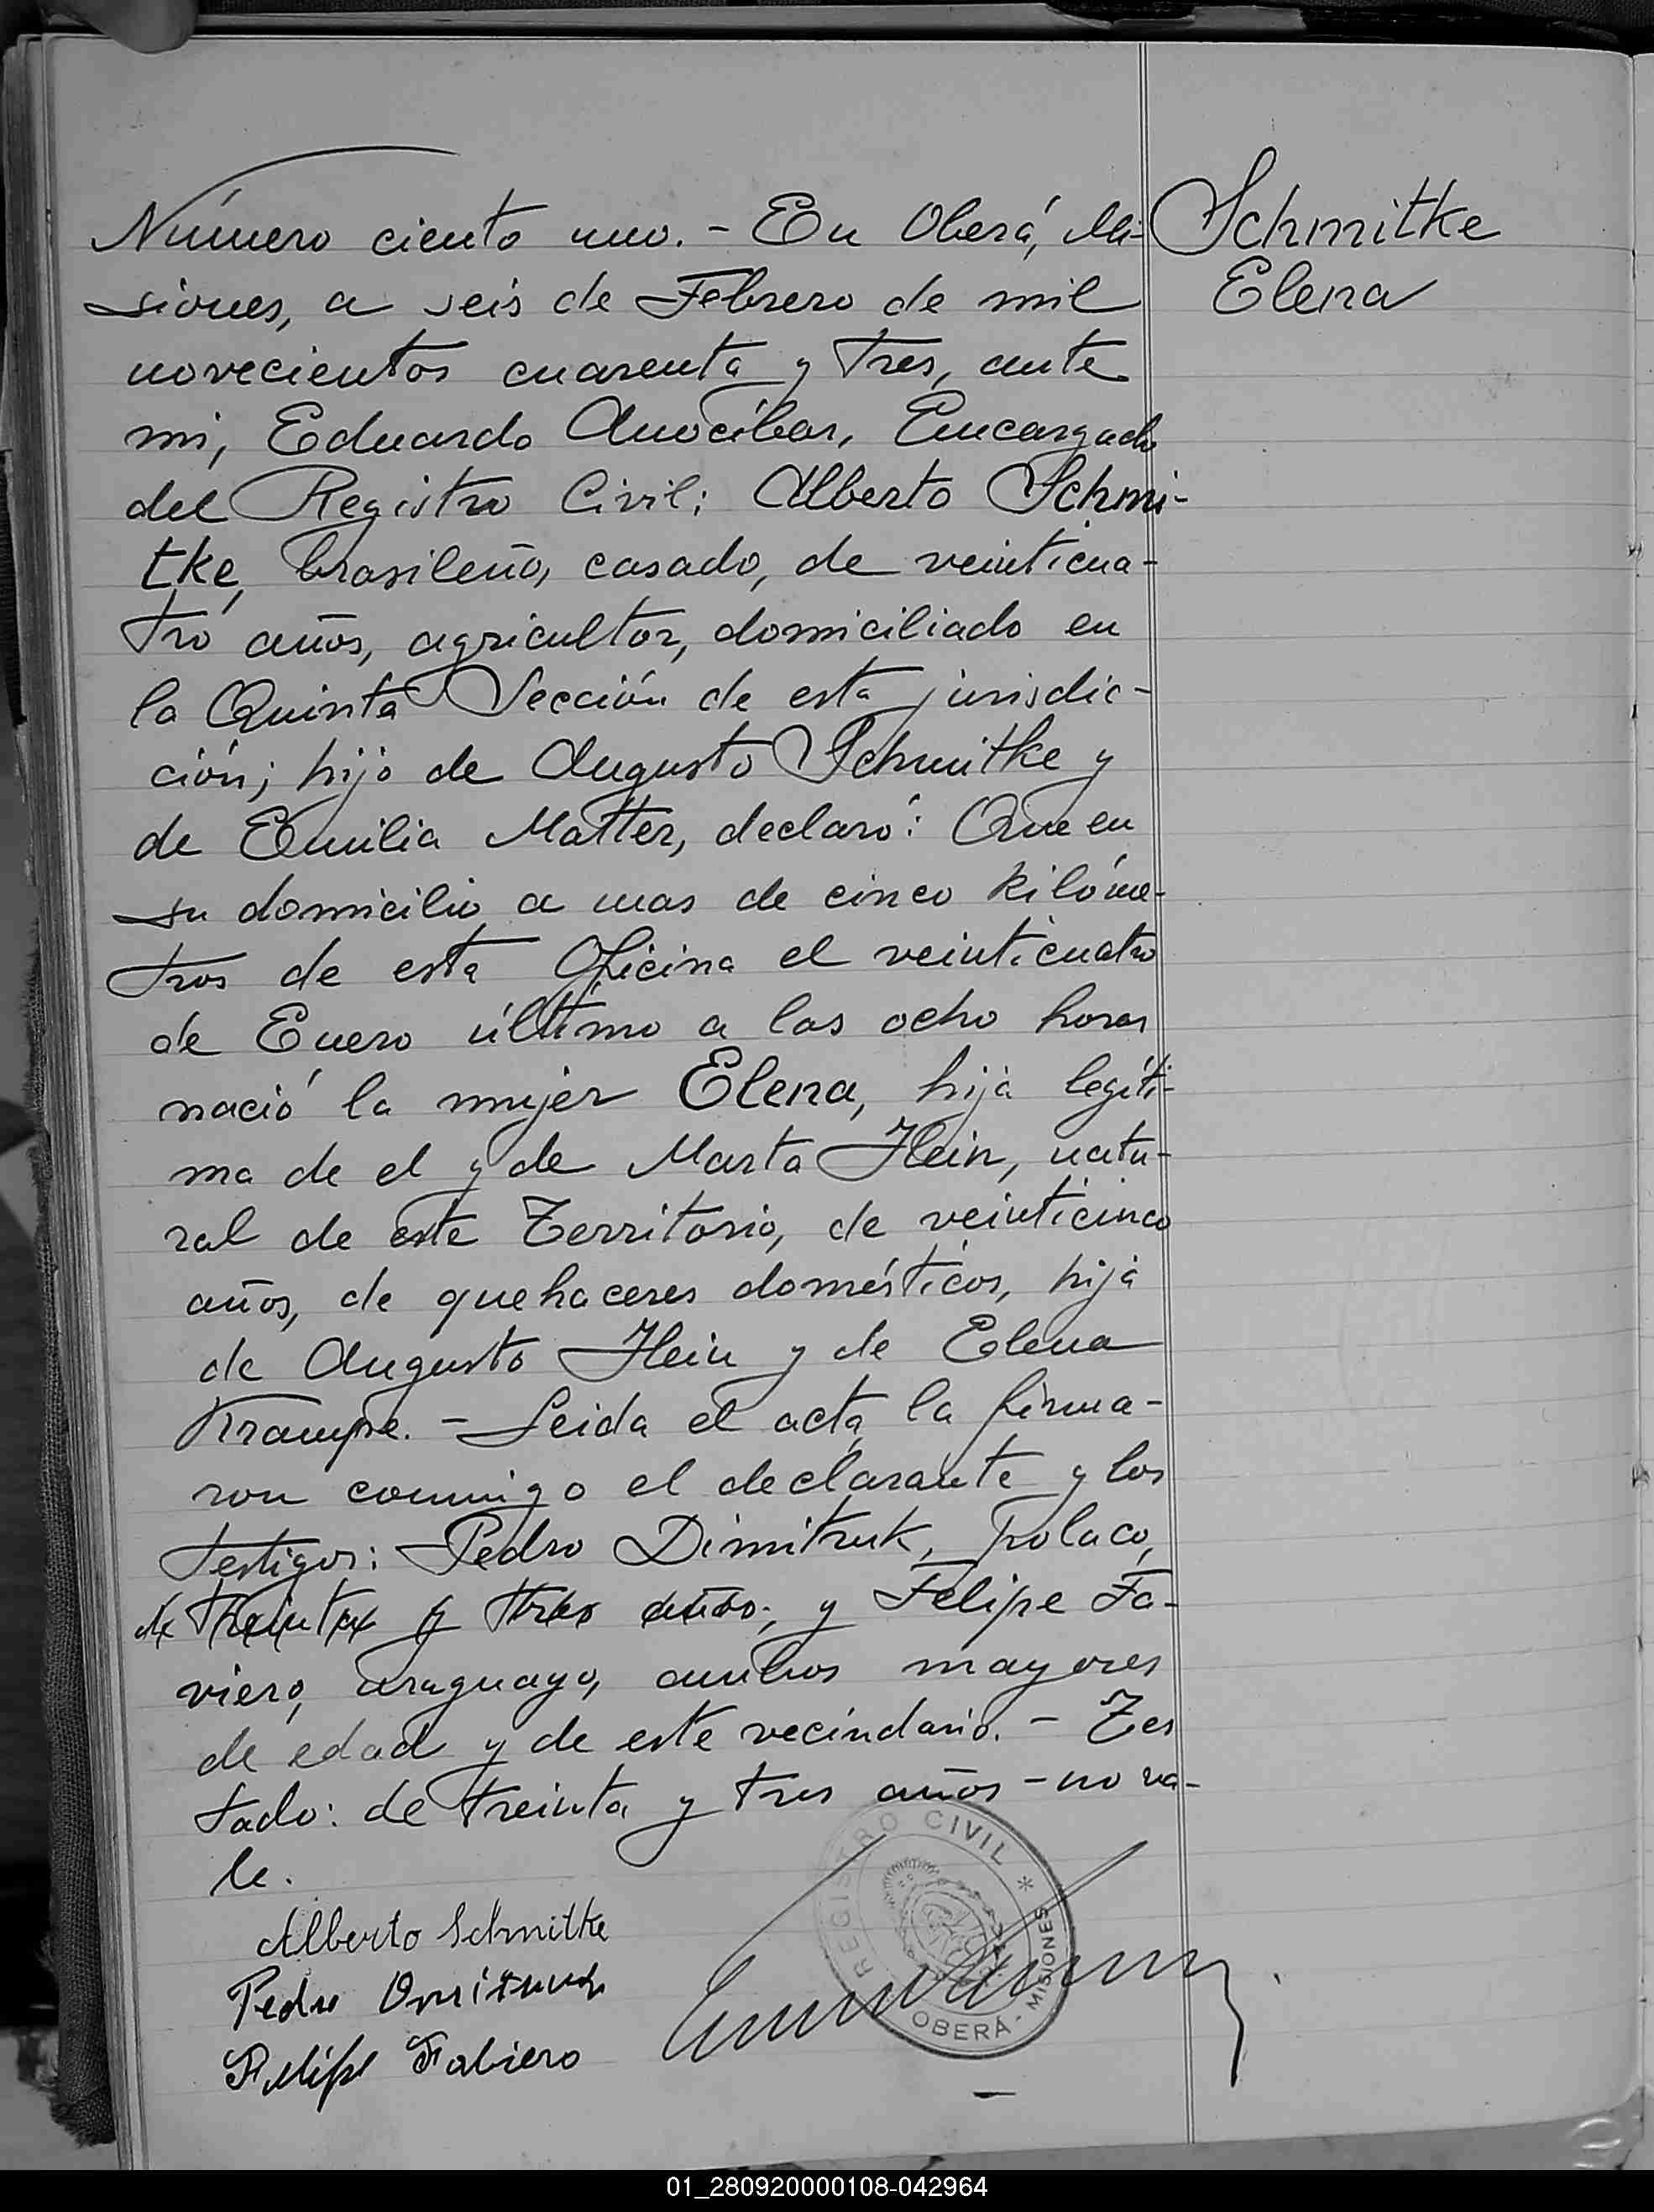 Número ciento uno. - En Oberá, Mi-
siones, a seis de Febrero de mil
novecientos cuarenta y tres, ante
mi, Eduardo Anocíbar, Encargado
del Registro Civil; Alberto Schmi-
tke, brasileño, casado, de veinticua-
tro años, agricultor, domiciliado en
la Quinta Sección de esta jurisdic-
ción; hijo de Augusto Schmitke y
de Emilia Matter, declaró: Que en
su domicilio a mas de cinco kilóme-
tros de esta Oficina el veinticuatro
de Enero último a las ocho horas
nació la mujer Elena, hija legíti-
ma de el y de Marta Hein, natu-
ral de este Territorio, de veinticinco
años, de quehaceres domésticos, hija
de Augusto Hein y de Elena
Krampe. - Leida el acta, la firma-
ron conmigo el declarante y los
testigos: Pedro Dimitruk, polaco,
de treinta y tres años, y Felipe Fa-
viero, uruguayo, ambos mayores
de edad y de este vecindario. - Tes
tado: de treinta y tres años - no va-
le.
Schmitke
Elena
Alberto Schmitke
Pedro
Felipe Fabiero
REGISTRO CIVIL *
OBERÁ - MISIONES
01_280920000108-042964